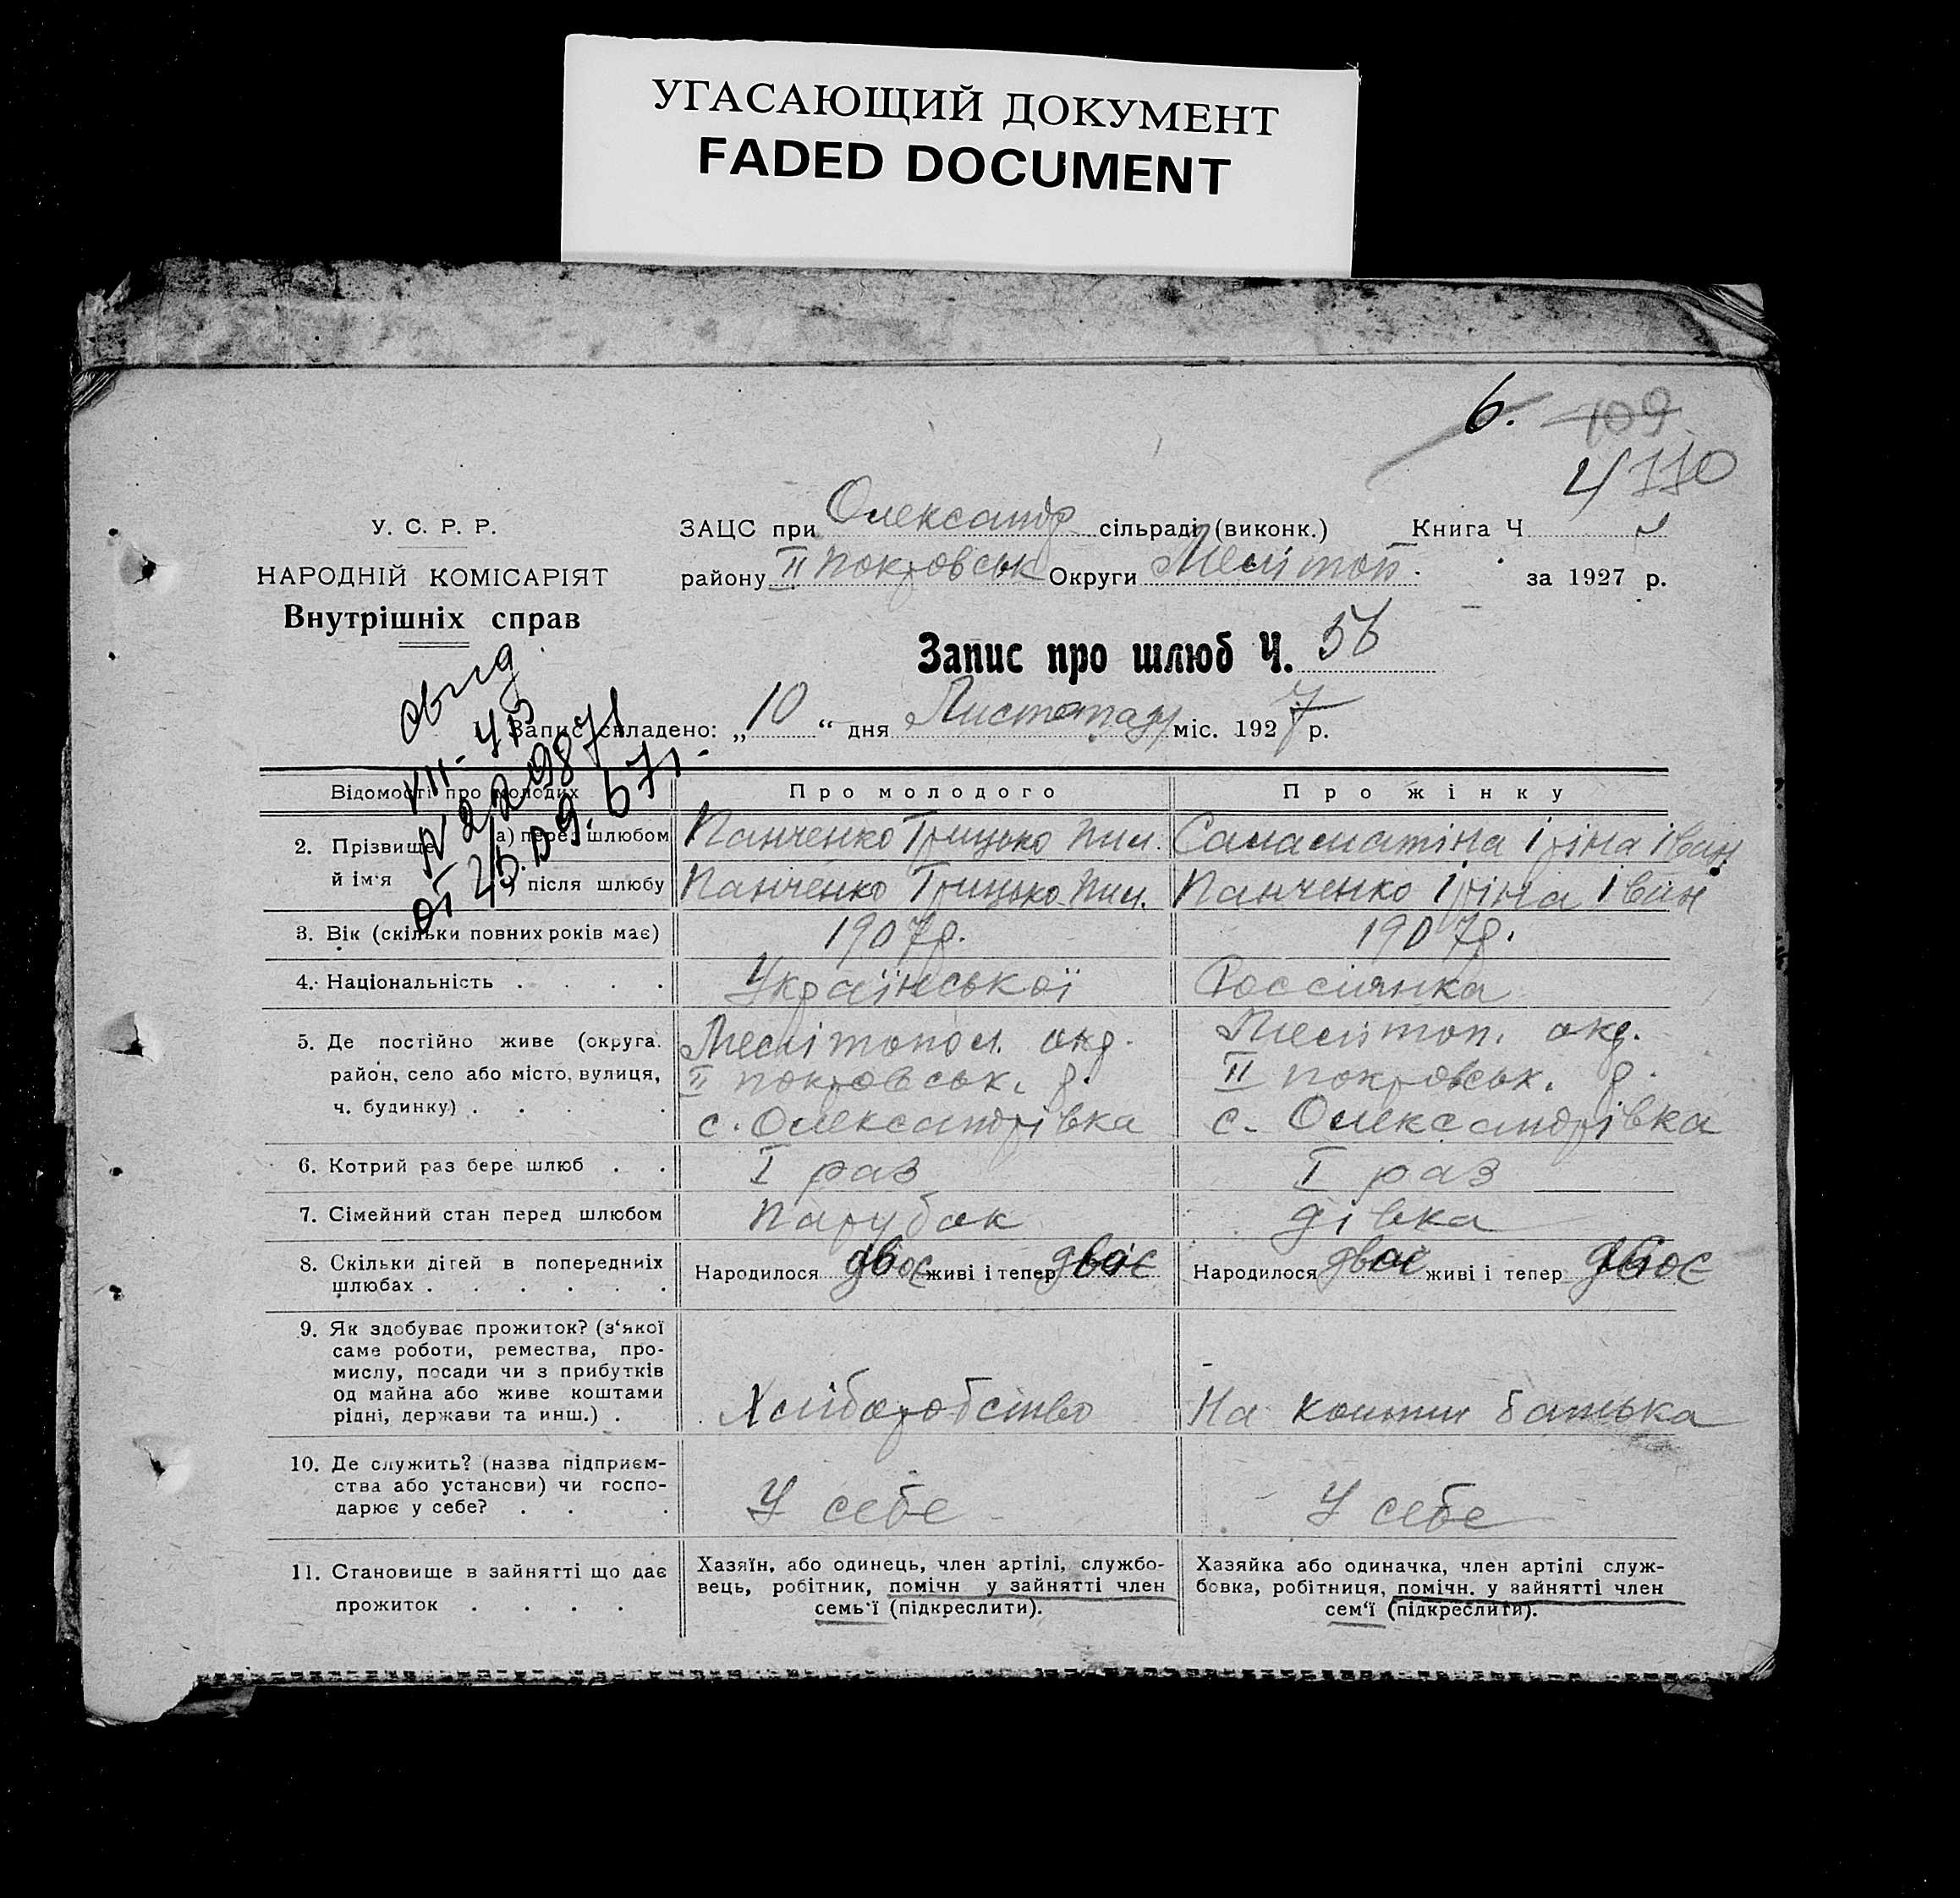 УГАСАЮЩИЙ ДОКУМЕНТ
FADED DOCUMENT
6. 109
4 110
У. С. Р. Р.
НАРОДНІЙ КОМІСАРІЯТ
Внутрішніх справ
ЗАЦС при Олександр сільраді (виконк.) Книга Ч
району ІІ Покровськ Округи Мелітоп. за 1927 р.
Запис про шлюб Ч. 56
Запис складено: „10“ дня Листопаду міс. 1927 р.
VII-ЯР
N 229871
от 25.09.67г.
Відомості про молодих Про молодого Про жінку
2. Прізвище й ім'я а) перед шлюбом Панченко Грицько Пил. Саламатіна Іріна Іван.
після шлюбу Панченко Грицько Пил. Панченко Іріна Іван
3. Вік (скільки повних років має) 1907р. 1907р.
4. Національність . . . . Української Россиянка
5. Де постійно живе (округа. Мелітопол. окр. Мелітоп. окр.
район, село або місто, вулиця, ІІ покровськ. р. ІІ покровськ. р.
ч. будинку) . . . . с. Олександрівка с. Олександрівка
6. Котрий раз бере шлюб . . І раз І раз
7. Сімейний стан перед шлюбом Парубок дівка
8. Скільки дітей в попередніх Народилося двоє живі і тепер двоє Народилося двоє живі і тепер двоє
шлюбах . . . . . .
9. Як здобуває прожиток? (з'якої
саме роботи, ремества, про-
мислу, посади чи з прибутків
од майна або живе коштами
рідні, держави та инш.) . Хліборобство На кошти батька
10. Де служить? (назва підприєм-
ства або установи) чи госпо-
дарює у себе? . . . У себе У себе
11. Становище в зайнятті що дає
прожиток . . . .
Хазяїн, або одинець, член артілі, службо-
вець, робітник, помічн у зайнятті член
семь'ї (підкреслити).
Хазяйка або одиначка, член артілі служ-
бовка, робітниця, помічн. у зайнятті член
сем'ї (підкреслити).